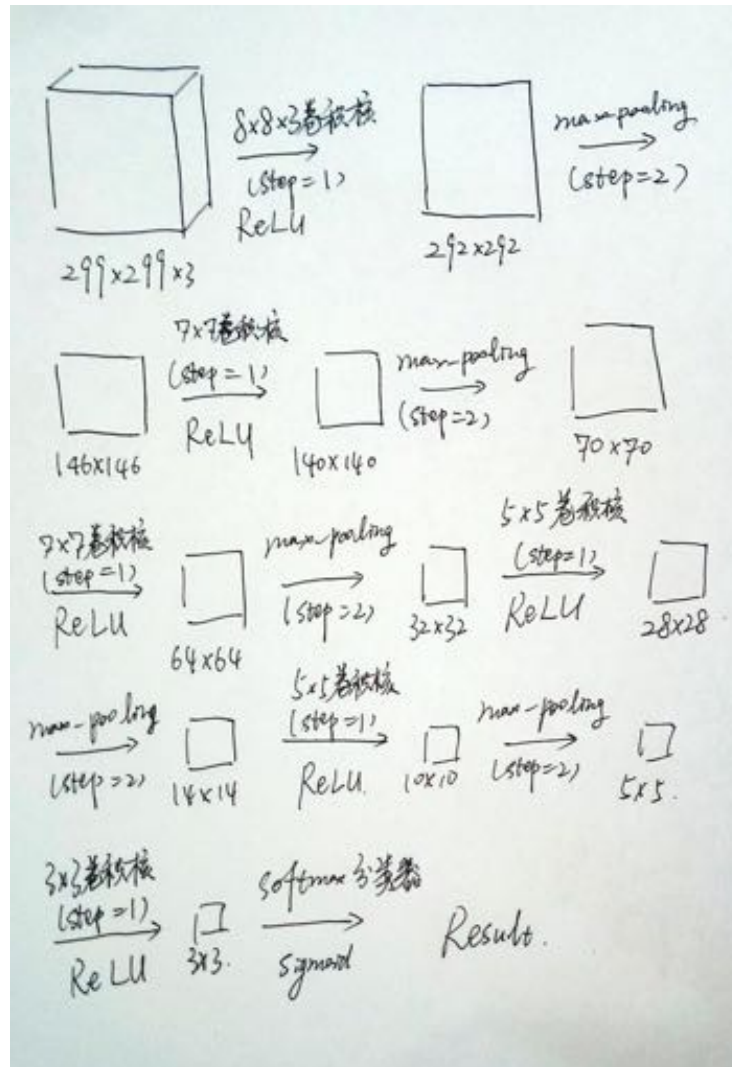 8x8x3卷积核
(step=1)
ReLU
299x299x3
292x292
max-pooling
(step=2)
146x146
7x7卷积核
(step=1)
ReLU
140x140
max-pooling
(step=2)
70x70
7x7卷积核
(step=1)
ReLU
64x64
max-pooling
(step=2)
32x32
5x5卷积核
(step=1)
ReLU
28x28
max-pooling
(step=2)
14x14
5x5卷积核
(step=1)
ReLU.
10x10
max-pooling
(step=2)
5x5.
3x3卷积核
(step=1)
ReLU
3x3.
softmax分类器
sigmoid
Result.